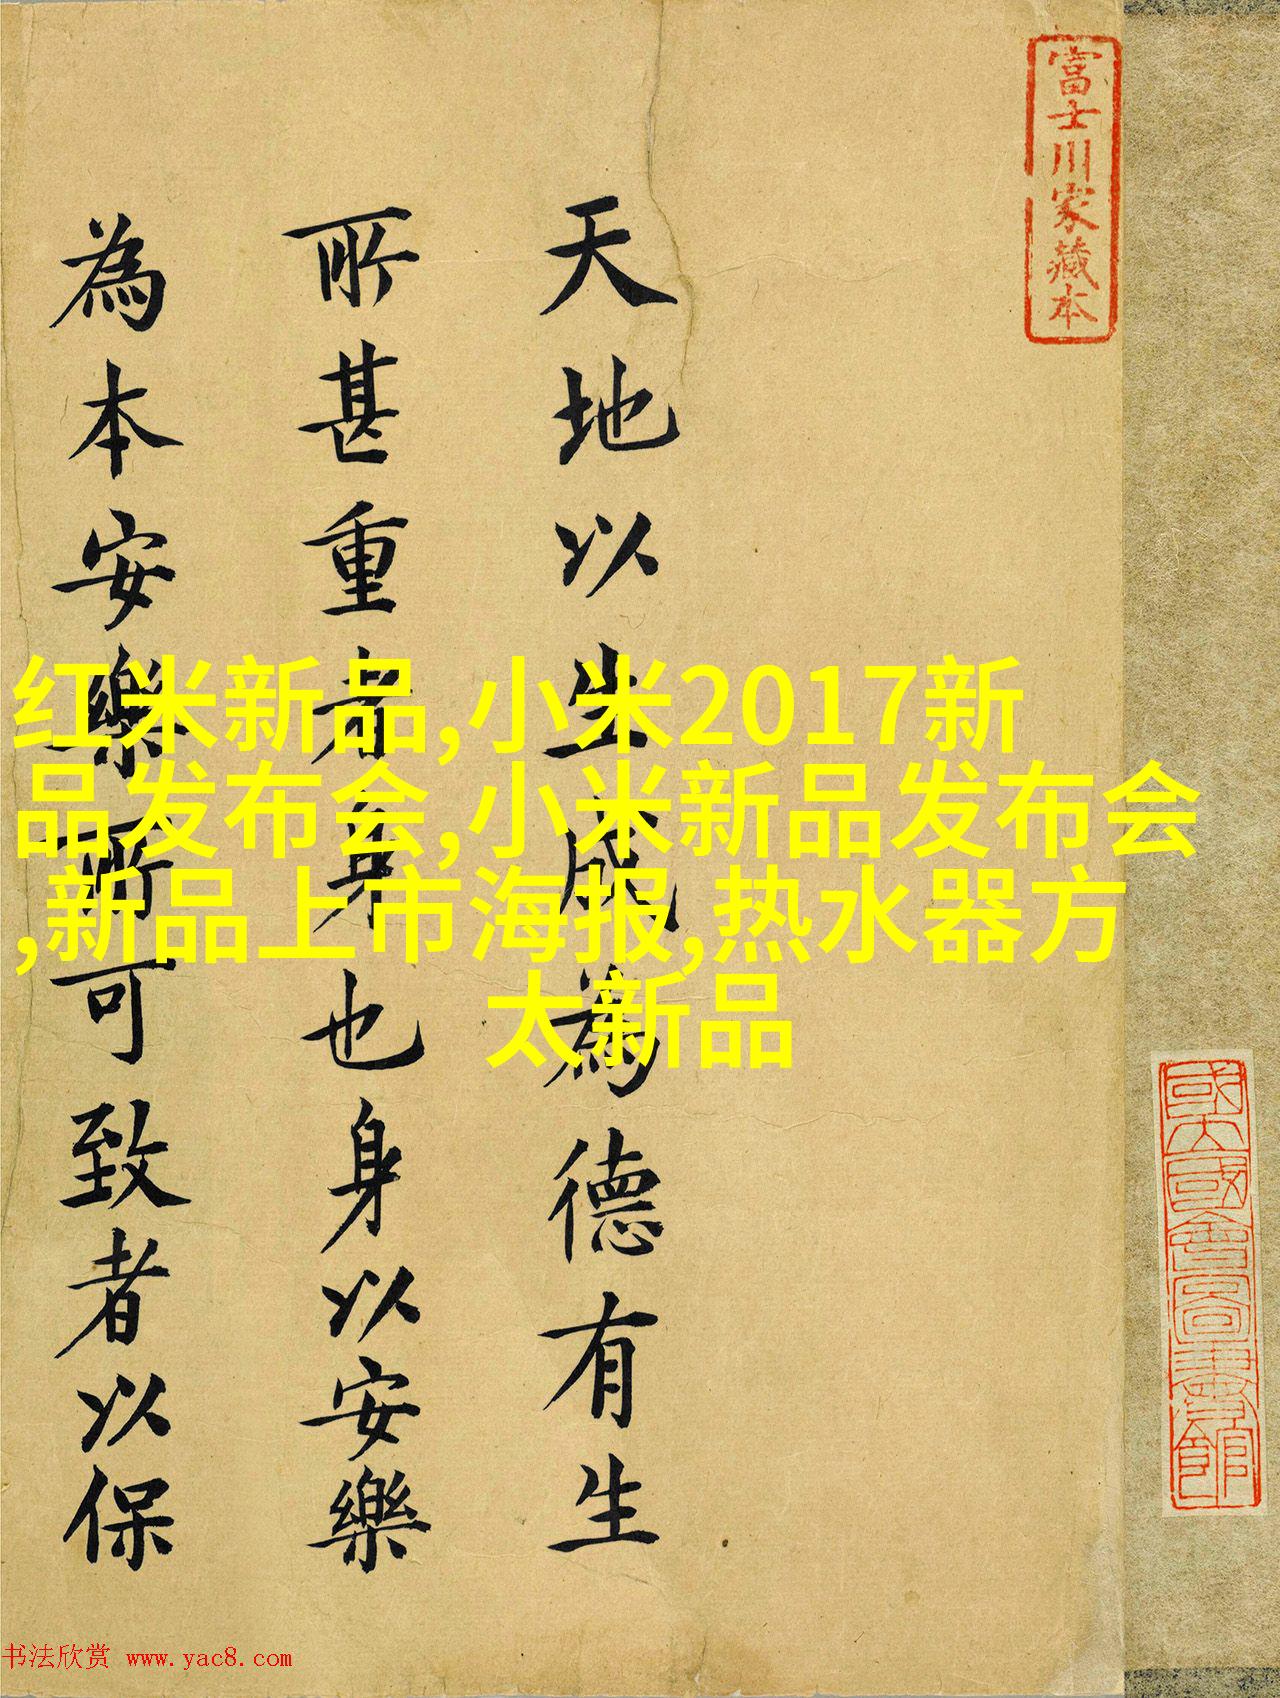 富士川家藏本
天地以生生成為德有生
所甚重者身也身以安樂
為本安樂所可致者以保
红米新品,小米2017新
品发布会,小米新品发布会
,新品上市海报,热水器方
太新品
書法欣赏 www.yac8.com